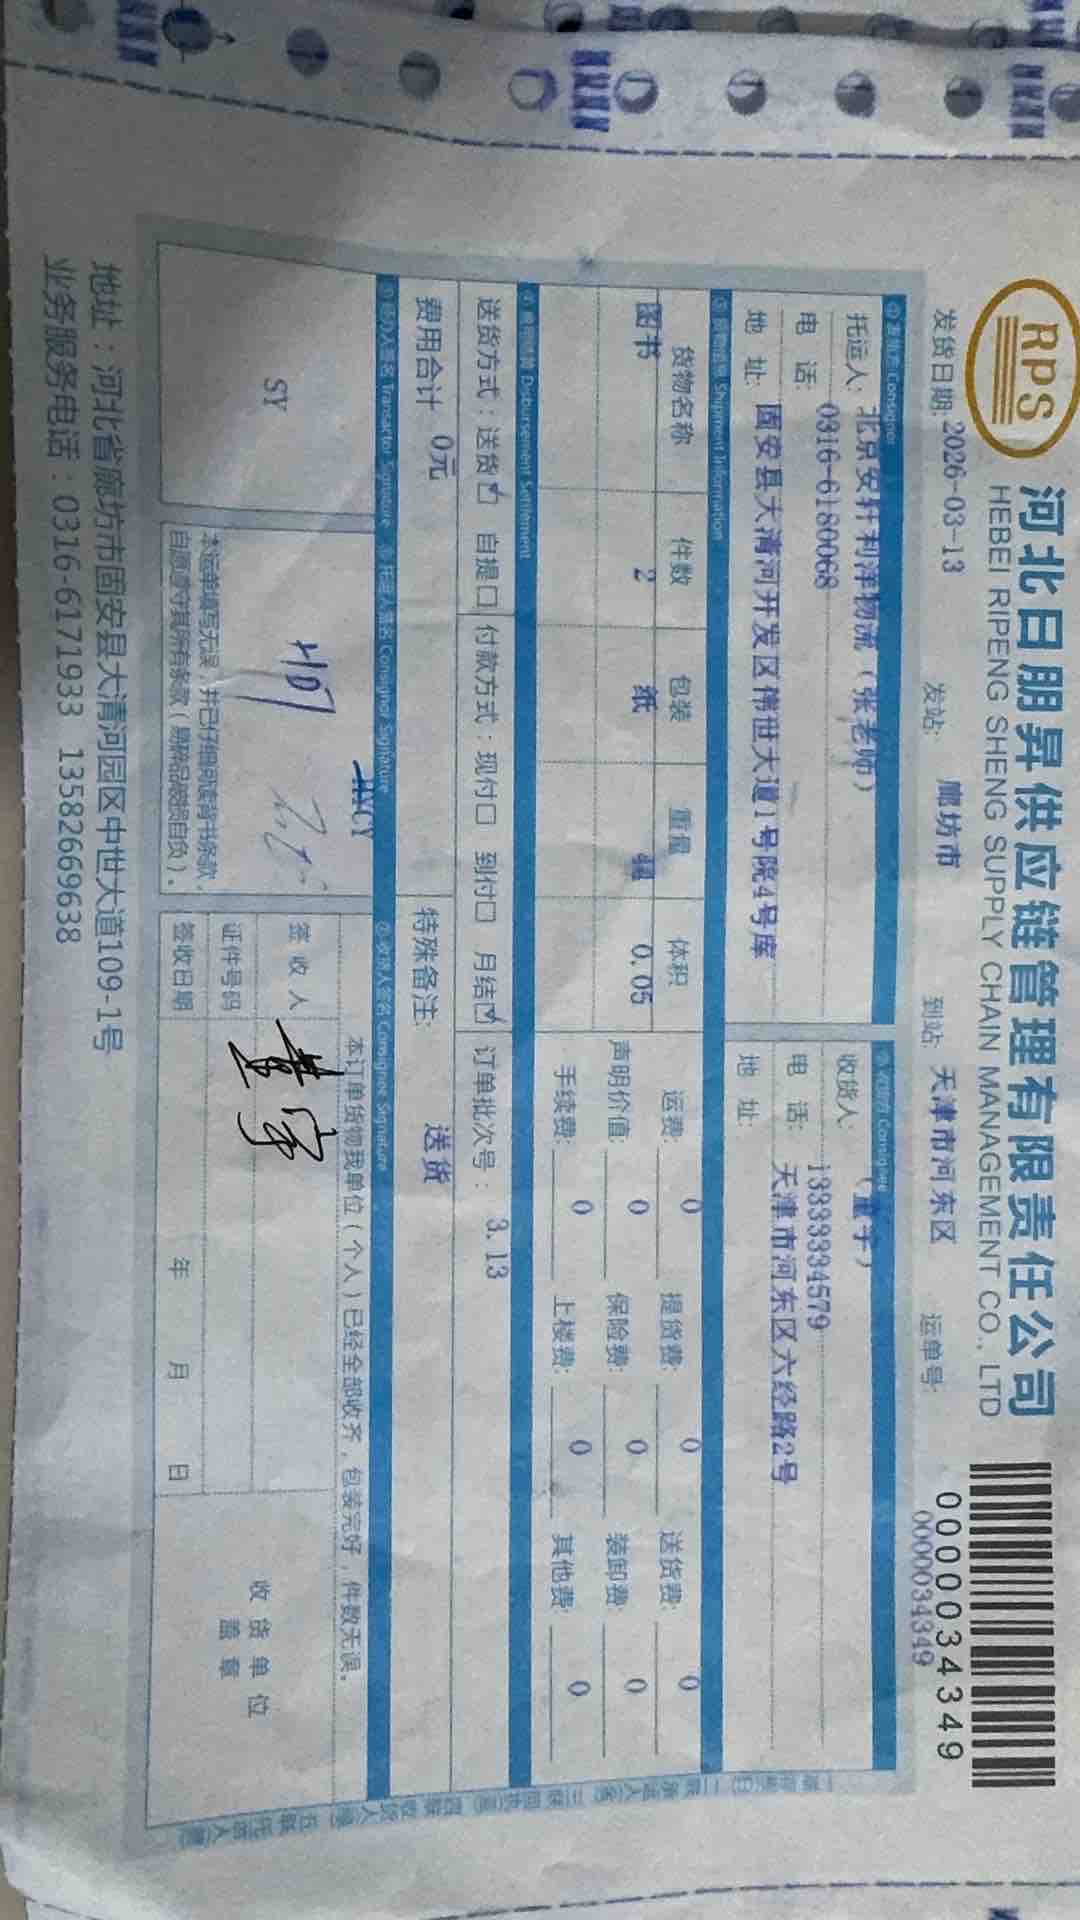 RPS
河北日朋昇供应链管理有限责任公司
HEBEI RIPENG SHENG SUPPLY CHAIN MANAGEMENT CO., LTD
0000034349
发货日期: 2026-03-13 发站: 廊坊市 到站: 天津市河东区 运单号: 0000034349
①发货方 Consignor
托运人: 北京安轩利洋物流（张老师）
电话: 0316-6180068
地址: 固安县大清河开发区伟世大道1号院4号库
②收货方 Consignee
收货人: （董宇）
电话: 13333334579
地址: 天津市河东区六经路2号
③货物信息 Shipment Information
货物名称 件数 包装 重量 体积
图书 2 纸 0.05
运费: 0 提货费: 0 送货费: 0
声明价值: 0 保险费: 0 装卸费: 0
手续费: 0 上楼费: 0 其他费: 0
④ Disbursement Settlement
送货方式：送货☑ 自提□ 付款方式：现付□ 到付□ 月结☑ 订单批次号： 3.13
费用合计 0元 特殊备注: 送货
⑤经办人签名 Transactor Signature
⑥托运人签名 Consignor Signature
⑦收货人签名 Consignee Signature
SY
HXCY
本运单填写无误，并已仔细阅读背书条款，
自愿遵守其所有条款（易碎品破损自负）。
本订单货物我单位（个人）已经全部收齐，包装完好，件数无误。
签收人 董宇
证件号码
签收日期 年 月 日
收货单位
盖章
地址：河北省廊坊市固安县大清河园区中世大道109-1号
业务服务电话：0316-6171933 13582669638